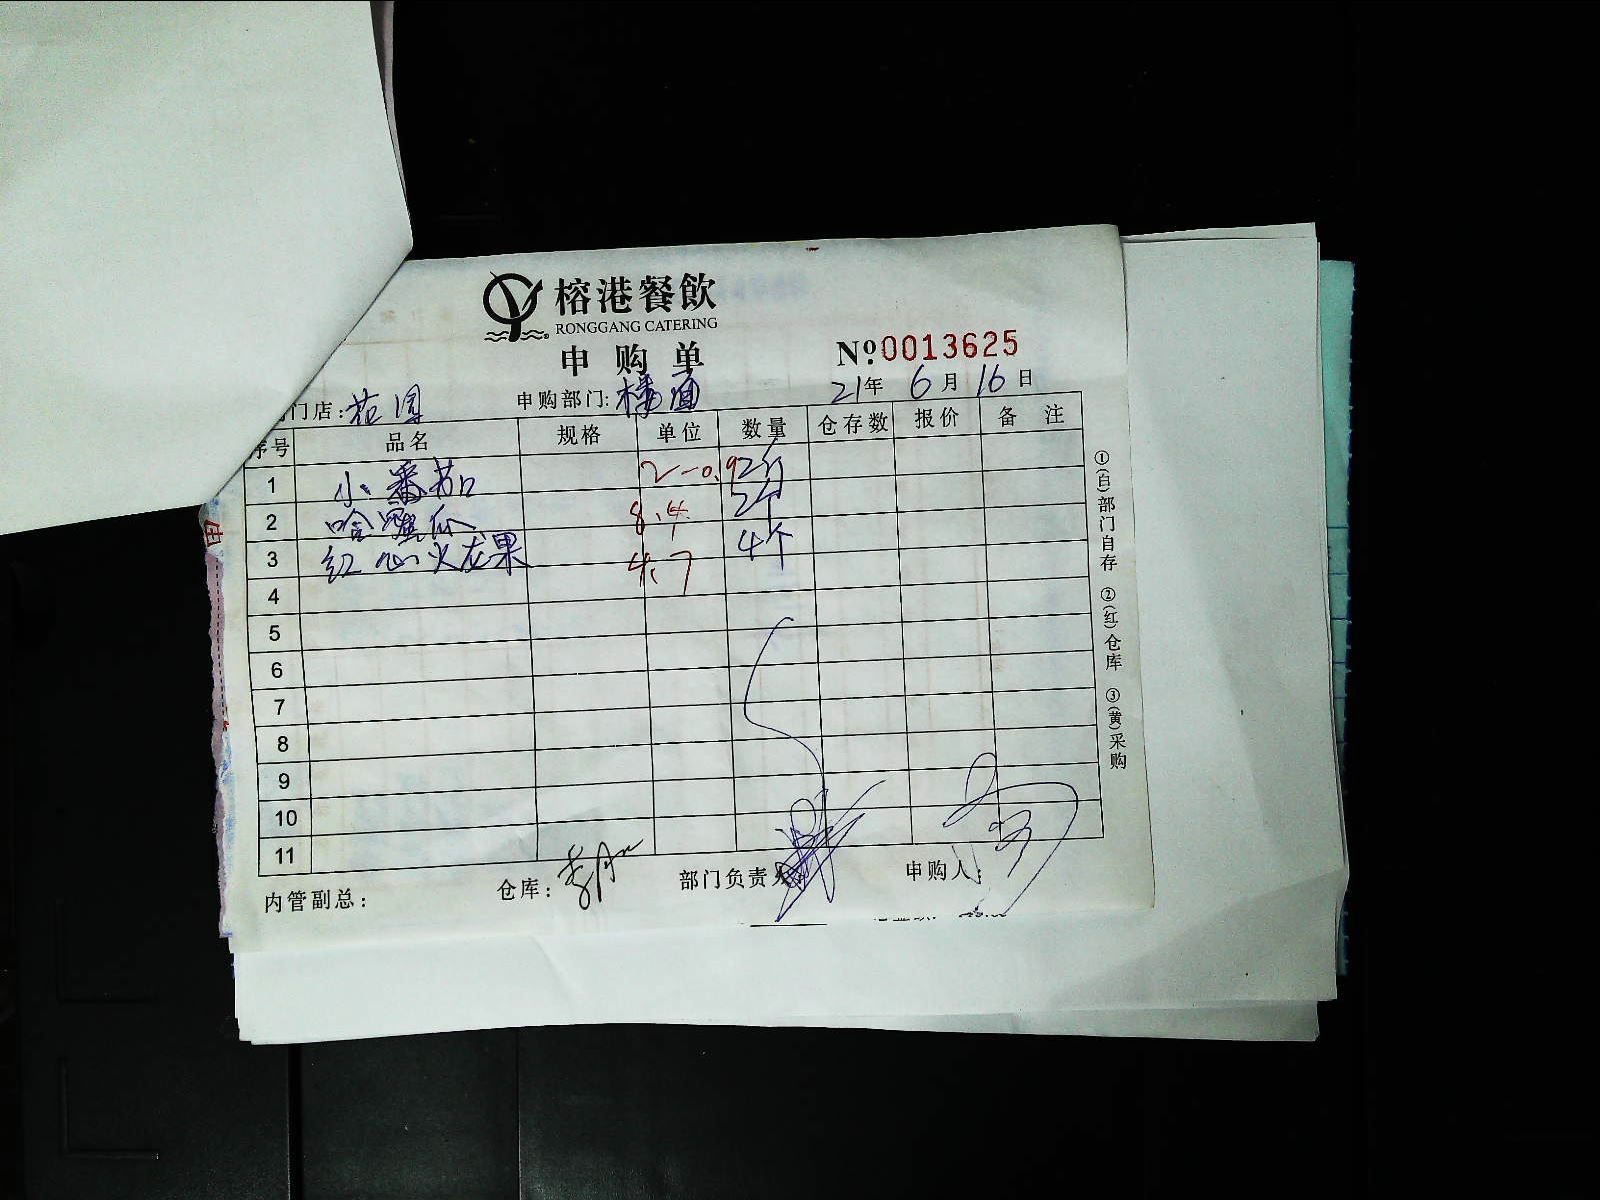 榕港餐飲
RONGGANG CATERING
申购单
Nº:0013625
门店: 申购部门: 楼面 21年 6月 16日
序号 品名 规格 单位 数量 仓存数 报价 备注
1 小番茄 2-0.9 2斤
2 哈蜜瓜 8.4 2个
3 红心火龙果 4.7 4个
4
5
6
7
8
9
10
11
内管副总: 仓库: 部门负责人: 申购人:
①(白)部门自存 ②(红)仓库 ③(黄)采购